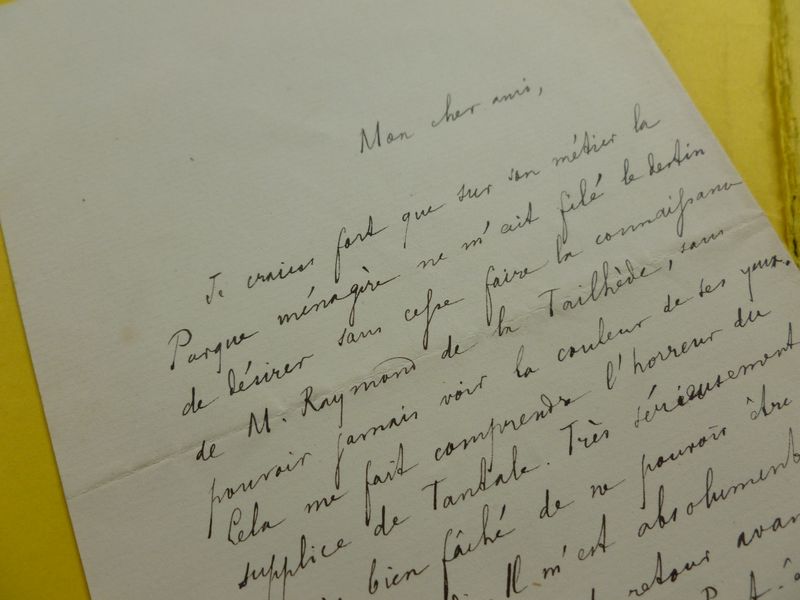 Mon cher ami,
Je crains fort que sur son métier la
Parque ménagère ne m'ait filé le destin
de désirer sans cesse faire la connaissance
de M. Raymond de la Tailhède, sans
pouvoir jamais voir la couleur de ses yeux.
Cela me fait comprendre l'horreur du
supplice de Tantale. Très sérieusement
bien fâché de ne pouvoir être
Il m'est absolument
retour avan